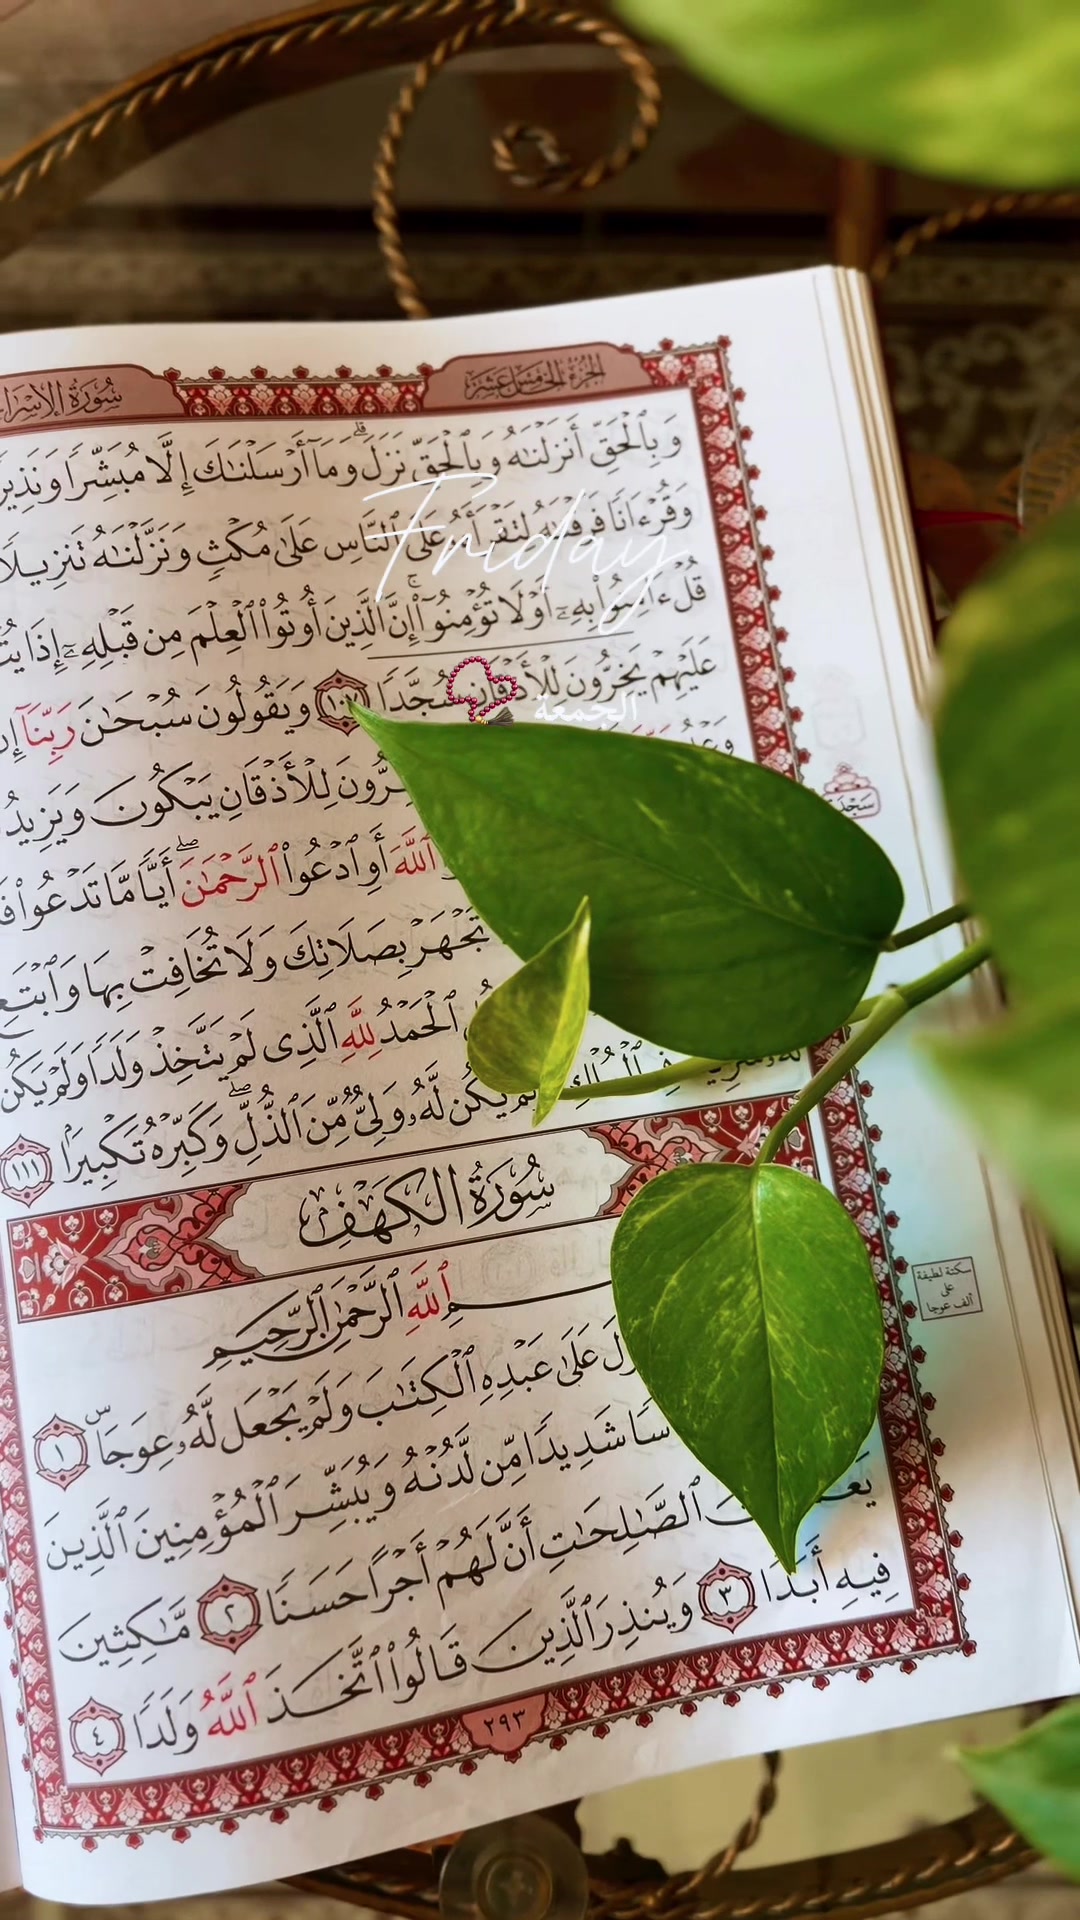 سُورَةُ الإِسْرَا
الجُزْءُ الخَامِسَ عَشَرَ
وَبِٱلْحَقِّ أَنزَلْنَٰهُ وَبِٱلْحَقِّ نَزَلَ ۗ وَمَآ أَرْسَلْنَٰكَ إِلَّا مُبَشِّرًا وَنَذِير
وَقُرْءَانًا فَرَقْنَٰهُ لِتَقْرَأَهُۥ عَلَى ٱلنَّاسِ عَلَىٰ مُكْثٍ وَنَزَّلْنَٰهُ تَنزِيلًا
Friday
قُلْ ءَامِنُوا۟ بِهِۦٓ أَوْ لَا تُؤْمِنُوٓا۟ ۚ إِنَّ ٱلَّذِينَ أُوتُوا۟ ٱلْعِلْمَ مِن قَبْلِهِۦٓ إِذَا
عَلَيْهِمْ يَخِرُّونَ لِلْأَذْقَانِ سُجَّدًا ١٠٧ وَيَقُولُونَ سُبْحَٰنَ رَبِّنَآ
الجمعة
لِلْأَذْقَانِ يَبْكُونَ وَيَزِيدُ
سَجْدَة
ٱللَّهَ أَوِ ٱدْعُوا۟ ٱلرَّحْمَٰنَ ۖ أَيًّا مَّا تَدْعُوا۟
تَجْهَرْ بِصَلَاتِكَ وَلَا تُخَافِتْ بِهَا وَٱبْتَغِ
ٱلْحَمْدُ لِلَّهِ ٱلَّذِى لَمْ يَتَّخِذْ وَلَدًا وَلَمْ يَكُن
يَكُن لَّهُۥ وَلِىٌّ مِّنَ ٱلذُّلِّ ۖ وَكَبِّرْهُ تَكْبِيرًۢا ١١١
سُورَةُ الكَهْفِ
ٱللَّهِ ٱلرَّحْمَٰنِ ٱلرَّحِيمِ
سكتة لطيفة
على
ألف عوجا
عَلَىٰ عَبْدِهِ ٱلْكِتَٰبَ وَلَمْ يَجْعَل لَّهُۥ عِوَجَاۜ ١
شَدِيدًا مِّن لَّدُنْهُ وَيُبَشِّرَ ٱلْمُؤْمِنِينَ ٱلَّذِينَ
ٱلصَّٰلِحَٰتِ أَنَّ لَهُمْ أَجْرًا حَسَنًا ٢ مَّٰكِثِينَ
فِيهِ أَبَدًا ٣ وَيُنذِرَ ٱلَّذِينَ قَالُوا۟ ٱتَّخَذَ ٱللَّهُ وَلَدًا ٤
٢٩٣